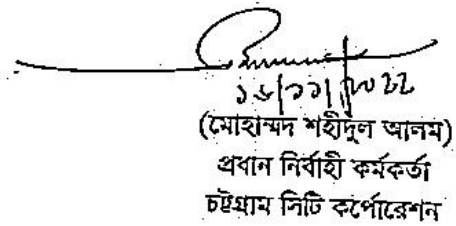 ১৬/১১/২০২২
(মোহাম্মদ শহীদুল আলম)
প্রধান নির্বাহী কর্মকর্তা
চট্টগ্রাম সিটি কর্পোরেশন